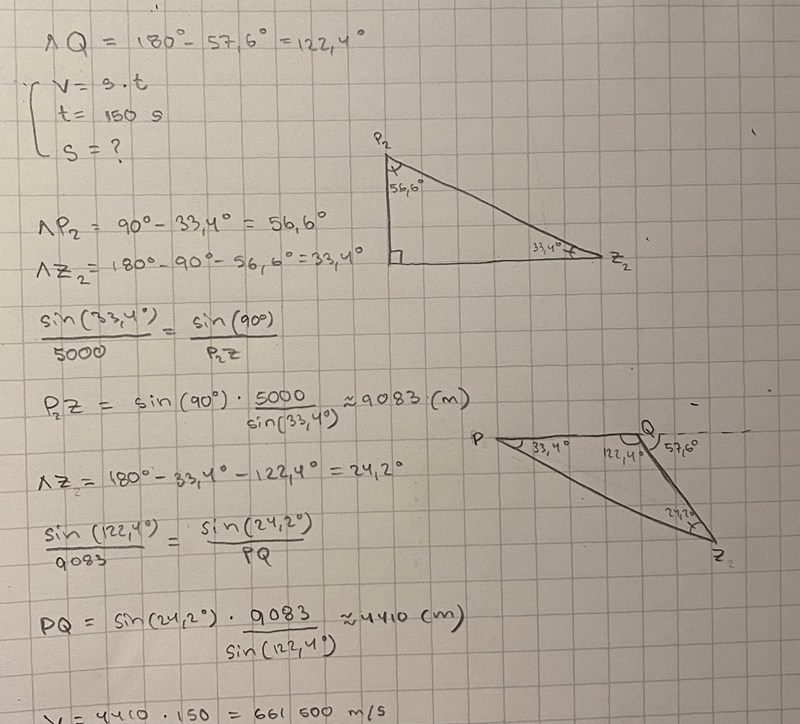 ∧Q = 180° - 57,6° = 122,4°
v = s · t
t = 150 s
s = ?
P₂
56,6°
33,4°
Z₂
∧P₂ = 90° - 33,4° = 56,6°
∧Z₂ = 180° - 90° - 56,6° = 33,4°
sin(33,4°)/5000 = sin(90°)/P₂Z
P₂Z = sin(90°) · 5000/sin(33,4°) ≈ 9083 (m)
P
33,4°
Q
122,4°
57,6°
24,2°
Z₂
∧Z₂ = 180° - 33,4° - 122,4° = 24,2°
sin(122,4°)/9083 = sin(24,2°)/PQ
PQ = sin(24,2°) · 9083/sin(122,4°) ≈ 4410 (m)
V = 4410 · 150 = 661 500 m/s